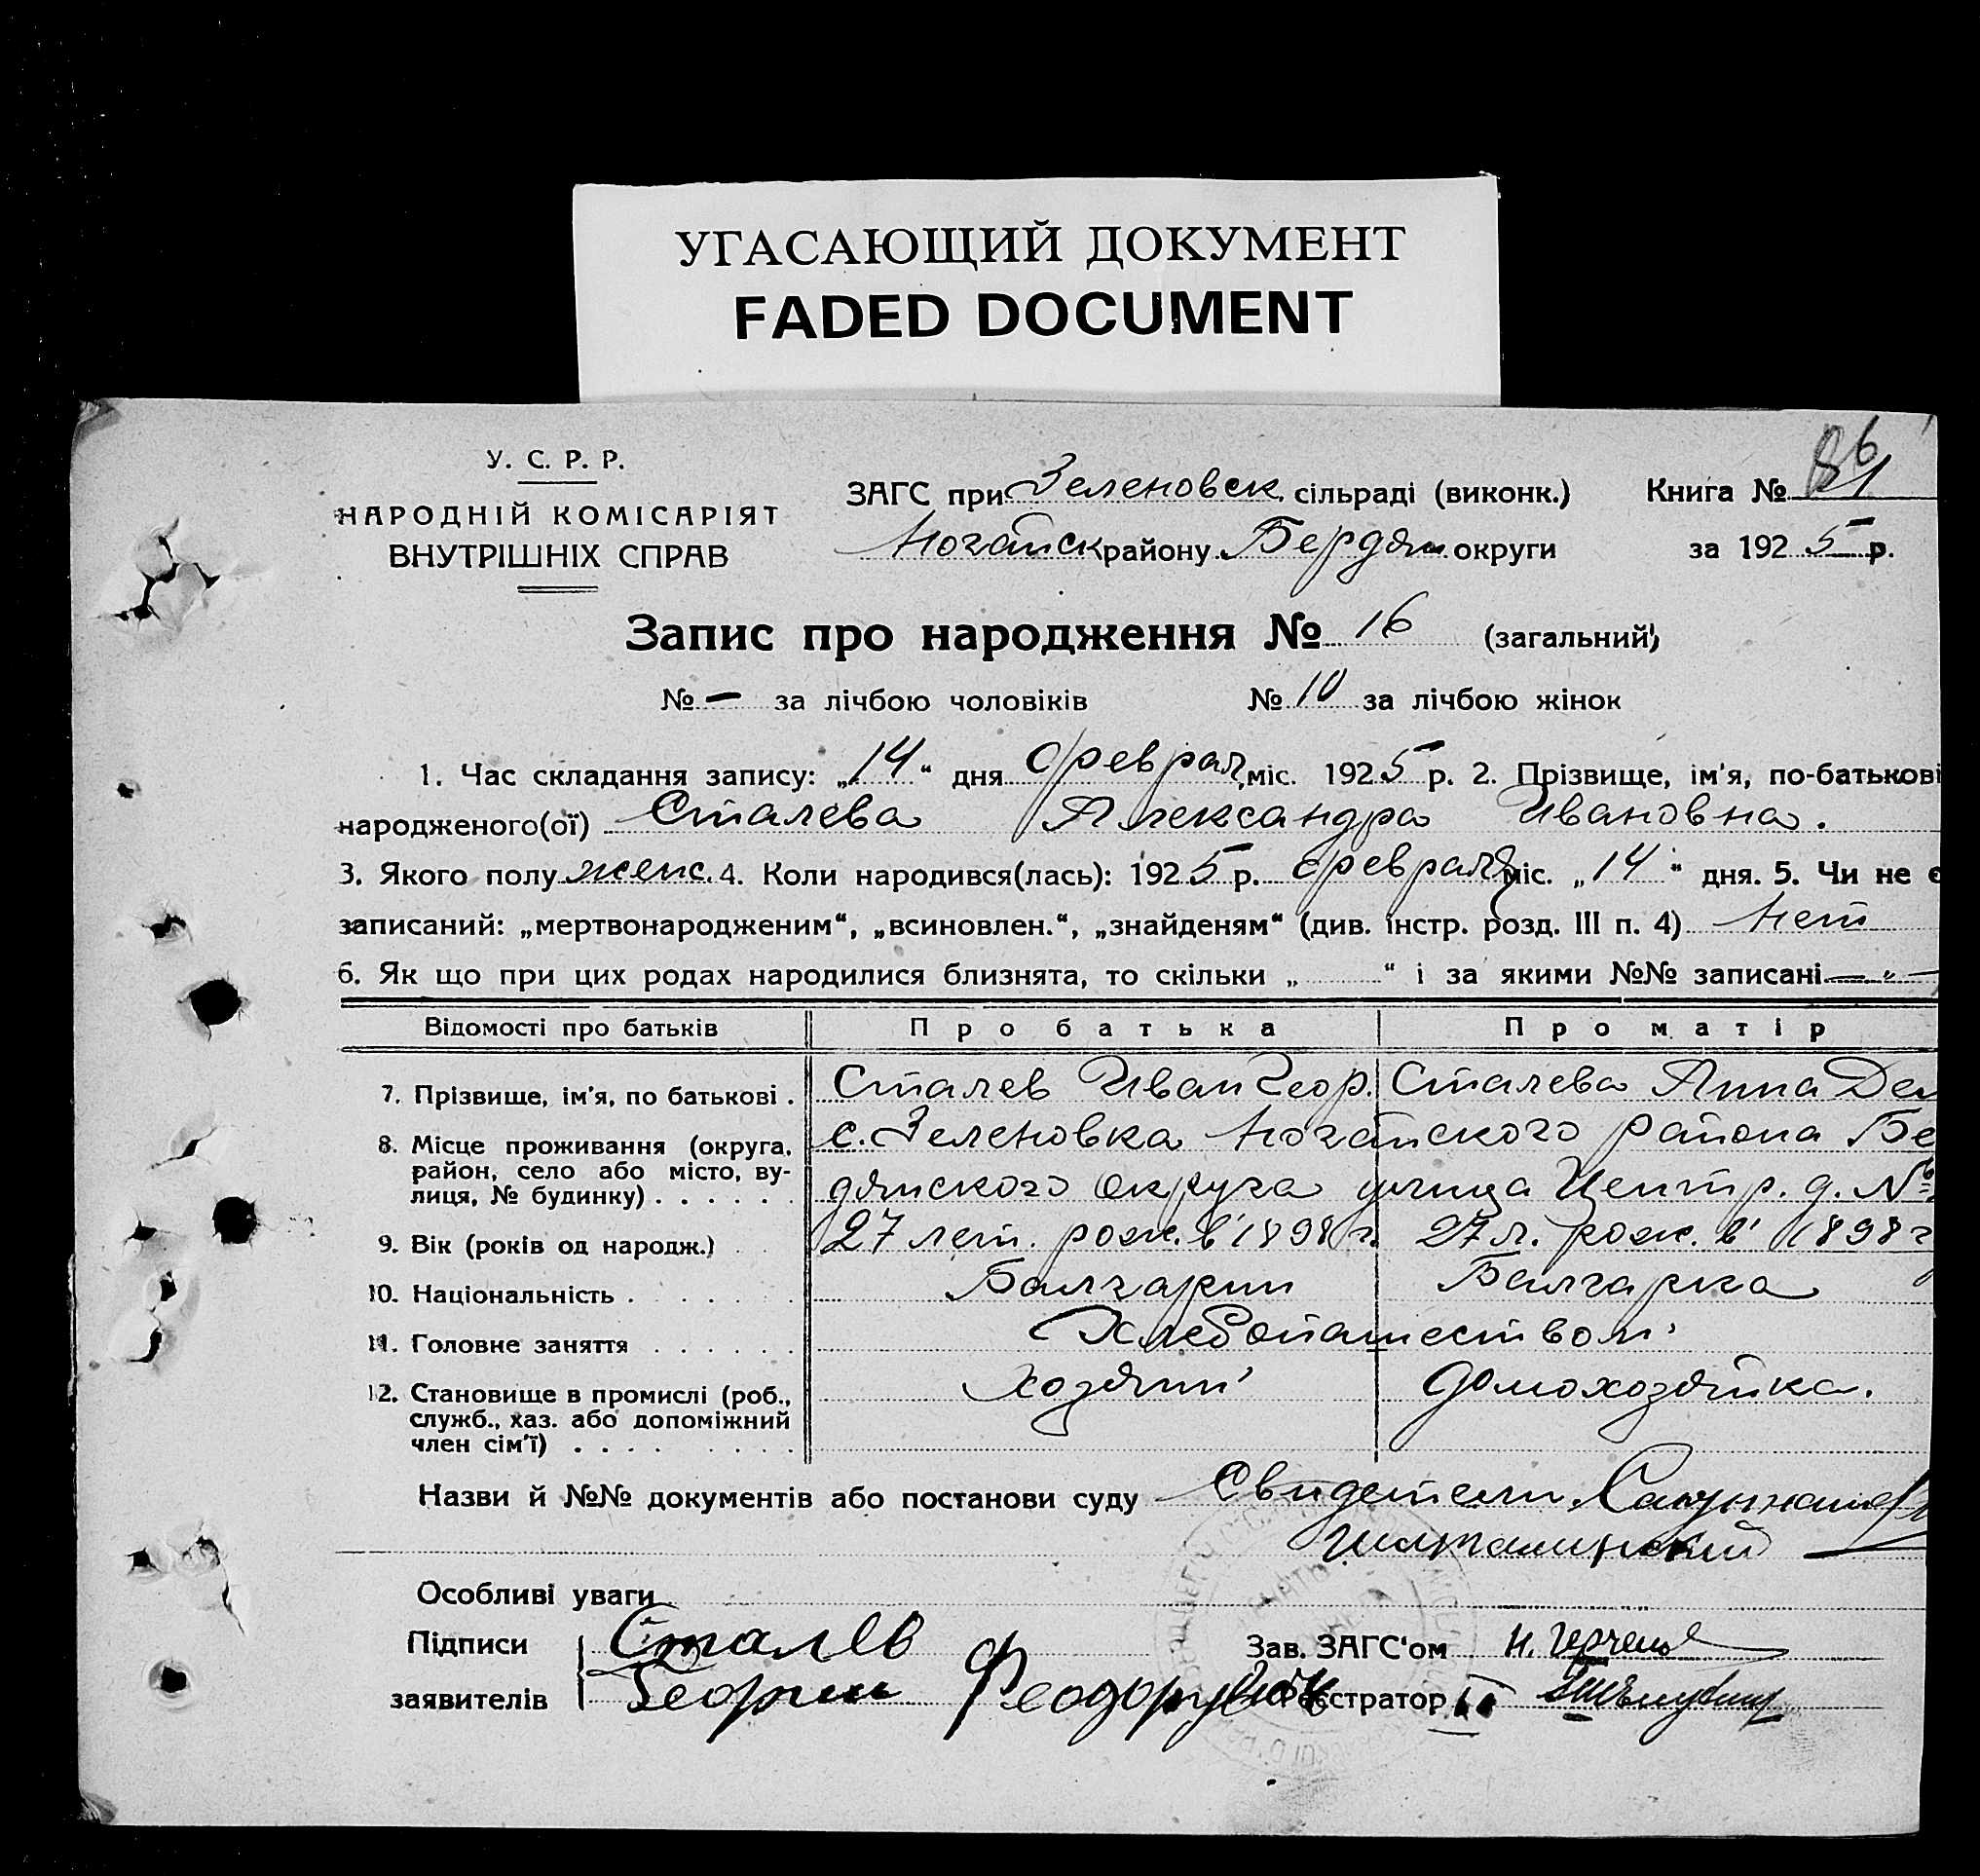 УГАСАЮЩИЙ ДОКУМЕНТ
FADED DOCUMENT
86
У. С. Р. Р.
НАРОДНІЙ КОМІСАРІЯТ
ВНУТРІШНІХ СПРАВ
ЗАГС при Зеленовск. сільраді (виконк.) Книга №
Ногайск району Бердян. округи за 1925 р.
Запис про народження № 16 (загальний)
№ — за лічбою чоловіків № 10 за лічбою жінок
1. Час складання запису: „14“ дня феврал. міс. 1925 р. 2. Прізвище, ім'я, по-батькові
народженого(ої) Сталева Александра Ивановна.
3. Якого полу женс. 4. Коли народився(лась): 1925 р. февраля міс. „14“ дня. 5. Чи не є
записаний: „мертвонародженим“, „всиновлен.“, „знайденям“ (див. інстр. розд. III п. 4) Нет
6. Як що при цих родах народилися близнята, то скільки „ “ і за якими №№ записані — „ —
Відомості про батьків Про батька Про матір
7. Прізвище, ім'я, по батькові . Сталев Иван Геор. Сталева Анна Дем
8. Місце проживання (округа, район, село або місто, вулиця, № будинку) . . . . . . с. Зеленовка Ногайского района Бе
дянского округа улица Центр. д. №
9. Вік (років од народж.) . . 27 лет. рож. в 1898 г. 27 л. рож. в 1898 г
10. Національність . . . . . . Балгарин Балгарка
11. Головне заняття . . . . . . Хлебопашеством
12. Становище в промислі (роб., служб., хаз. або допоміжний член сім'ї) . . . . . . . . Хозяин Домохозяйка.
Назви й №№ документів або постанови суду Свидетели
Особливі уваги
Підписи Сталев Зав. ЗАГС'ом Н.
заявителів Георгий Реєстратор